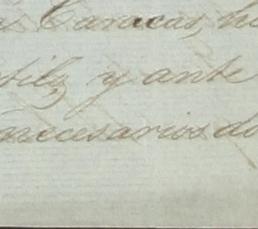 Caracas, h
y ante
necesarios do